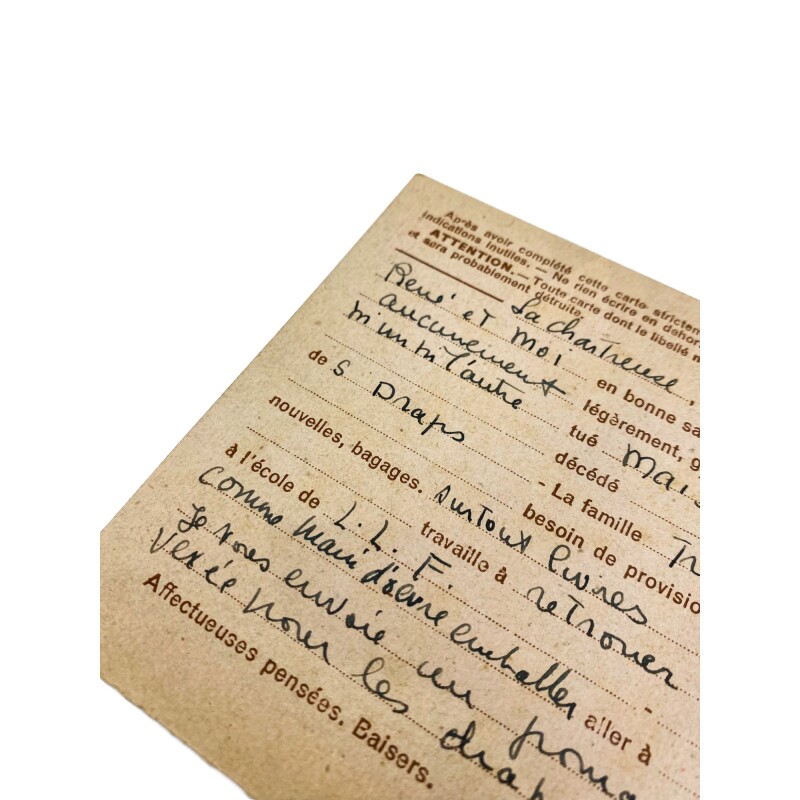 Après avoir complété cette carte strictem
indications inutiles. — Ne rien écrire en dehor
ATTENTION. — Toute carte dont le libellé n
et sera probablement détruite.
La chartreuse,
René et Moi en bonne sa
aucunement légèrement, g
l'autre tué Mais
de s Draps décédé
- La famille
nouvelles, bagages. surtout livres besoin de provisio
à l'école de L. L. F. travaille à retrouver
comme main d'œuvre emballer aller à
Je vous envoie un
pour les drap
Affectueuses pensées. Baisers.